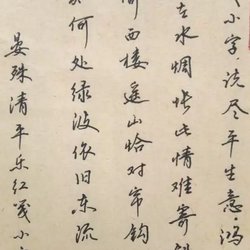 小字说尽平生意鸿
在水惆怅此情难寄斜
倚西楼遥山恰对帘钩
何处绿波依旧东流
晏殊清平乐红笺小